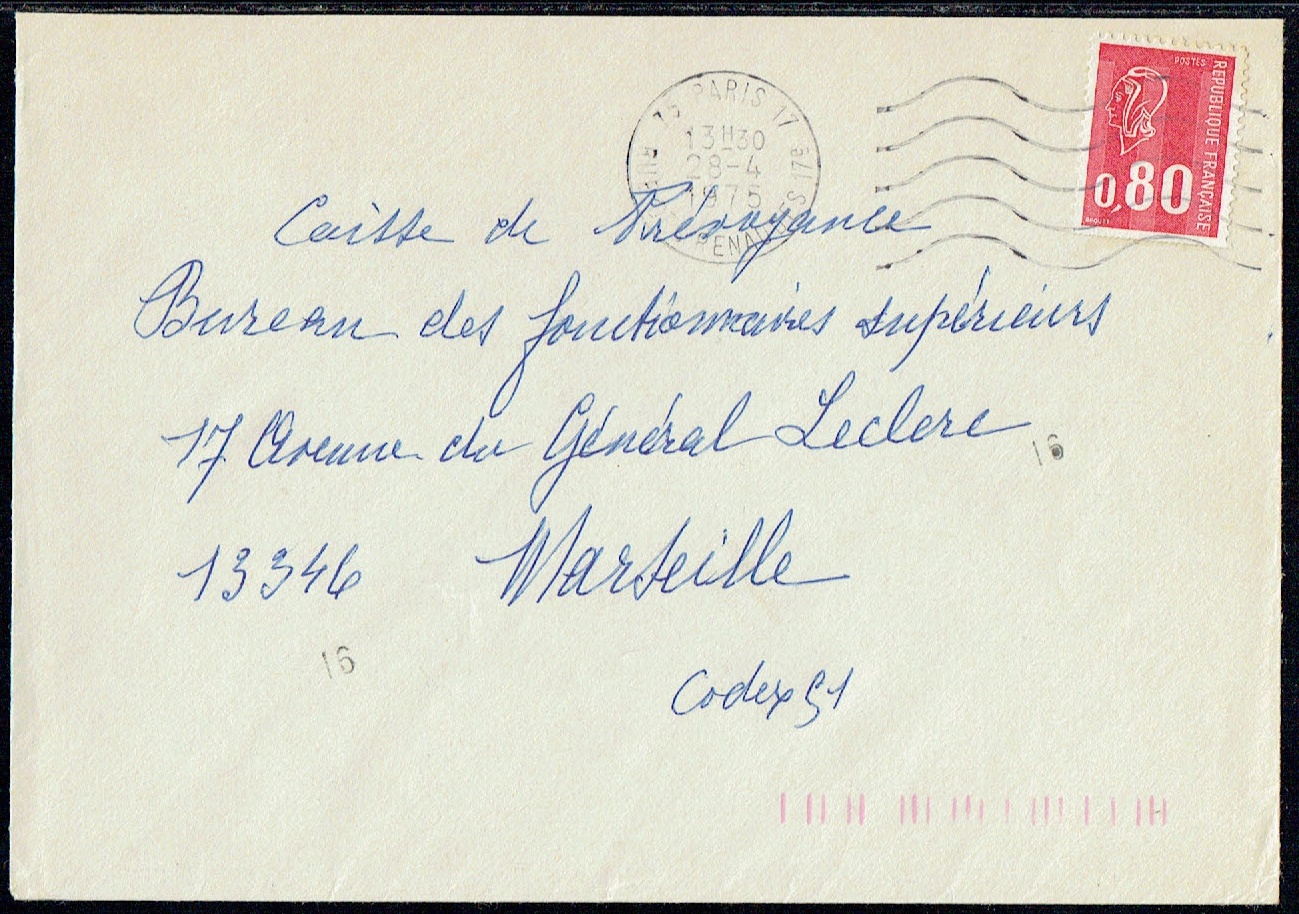 75 PARIS 17
13H30
28-4
1975
RUE
RENAUDES
17e S
REPUBLIQUE FRANÇAISE
POSTES
0,80
BEQUET
Caisse de Prévoyance
Bureau des fonctionnaires supérieurs
17 Avenue du Général Leclerc
16
13346 Marseille
16
Codex 51